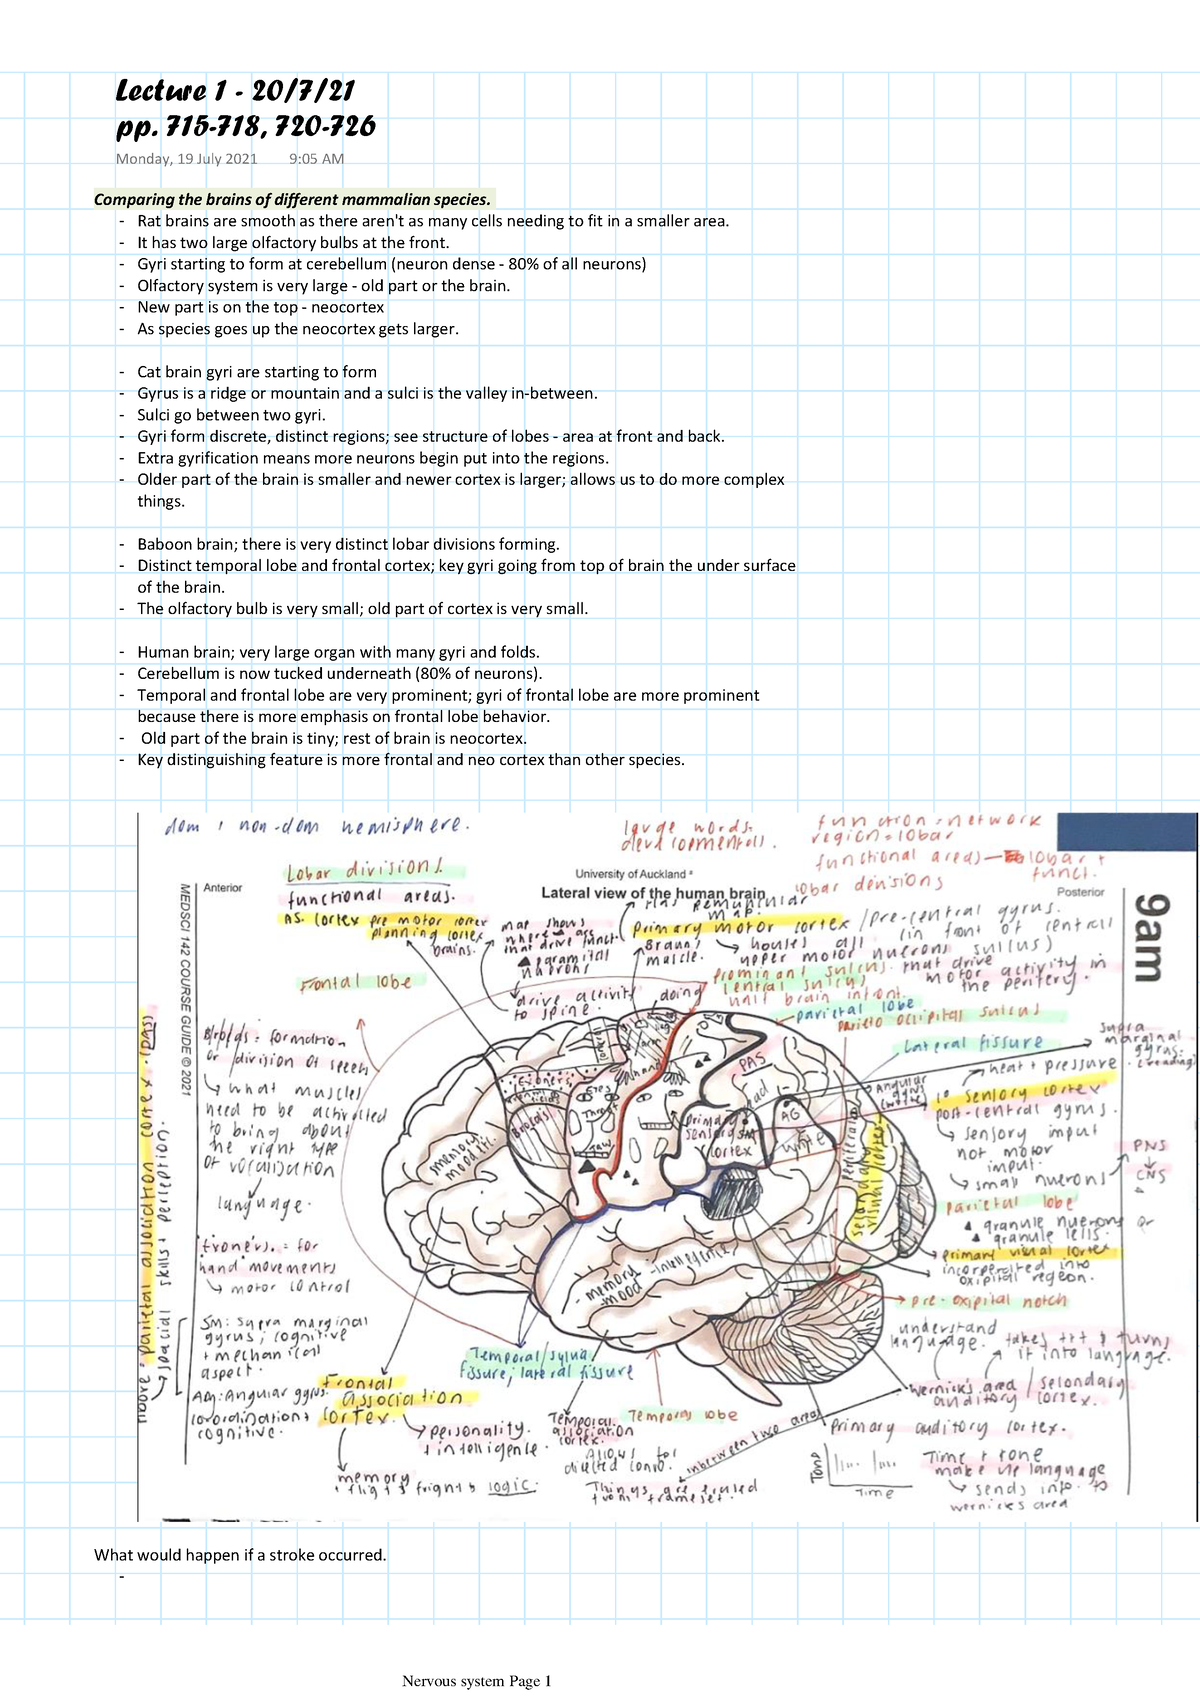 Lecture 1 - 20/7/21
pp. 715-718, 720-726
Monday, 19 July 2021 9:05 AM
Comparing the brains of different mammalian species.
- Rat brains are smooth as there aren't as many cells needing to fit in a smaller area.
- It has two large olfactory bulbs at the front.
- Gyri starting to form at cerebellum (neuron dense - 80% of all neurons)
- Olfactory system is very large - old part or the brain.
- New part is on the top - neocortex
- As species goes up the neocortex gets larger.
- Cat brain gyri are starting to form
- Gyrus is a ridge or mountain and a sulci is the valley in-between.
- Sulci go between two gyri.
- Gyri form discrete, distinct regions; see structure of lobes - area at front and back.
- Extra gyrification means more neurons begin put into the regions.
- Older part of the brain is smaller and newer cortex is larger; allows us to do more complex
things.
- Baboon brain; there is very distinct lobar divisions forming.
- Distinct temporal lobe and frontal cortex; key gyri going from top of brain the under surface
of the brain.
- The olfactory bulb is very small; old part of cortex is very small.
- Human brain; very large organ with many gyri and folds.
- Cerebellum is now tucked underneath (80% of neurons).
- Temporal and frontal lobe are very prominent; gyri of frontal lobe are more prominent
because there is more emphasis on frontal lobe behavior.
- Old part of the brain is tiny; rest of brain is neocortex.
- Key distinguishing feature is more frontal and neo cortex than other species.
dom + non-dom hemisphere.
large words.
developmental.
function = network
region = lobar
functional areas → lobar +
funct.
lobar divisions
Lobar divisions.
functional areas.
University of Auckland
Anterior
Lateral view of the human brain
Posterior
MEDSCI 142 COURSE GUIDE © 2021
9am
pre motor cortex
planning cortex
brains.
map shows
where
that drive funct.
neurons
drive activity
to spine.
map.
primary motor cortex / pre-central gyrus.
(in front of central
sulcus)
houses all
upper motor nuerons
that drive
motor activity in
the perifery.
muscle.
prominant sulcus.
central sulcus
doing
parietal lobe
parieto occipital sulcus
Lateral fissure
supra
marginal
gyrus.
(reading)
heat + pressure
Frontal lobe
Brocas = formation
or division of speech
what muscles
need to be activated
to bring about
the right type
of vocalisation
language.
Exoners. = for
hand movements
motor control
SM: supra marginal
gyrus; cognitive
+ mechanical
aspect.
AG: Angular gyrus.
coordination +
cognitive.
above = parietal association cortex. (PAS)
spacial skills + perception.
1° sensory cortex
post-central gyrus.
sensory input
not motor
input.
small nuerons
PNS
CNS
parietal lobe
granule nuerons or
granule cells.
primary visual cortex
incorperated into
oxipital region.
pre-oxipital notch
understand
language.
takes txt + turns
it into language.
Wernicks area / secondary
auditory cortex.
primary auditory cortex.
Tone
Time
Time + tone
make up language
sends info to
wernicks area
inbetween two areas
Exoners
Brocas
Eyes
Jaw
hand
PAS
AG
SM
primary
sensory
cortex
write
secondary
visual cortex
memory
mood
memory - intelligence
mood
Angular
gyrus
Temporal/sylvian
fissure, lateral fissure
Frontal
association
cortex.
personality.
+ intelligence.
memory
flight + fright + logic.
Temporal
association
cortex.
Allows for
Temporal lobe
Things are
What would happen if a stroke occurred.
-
Nervous system Page 1